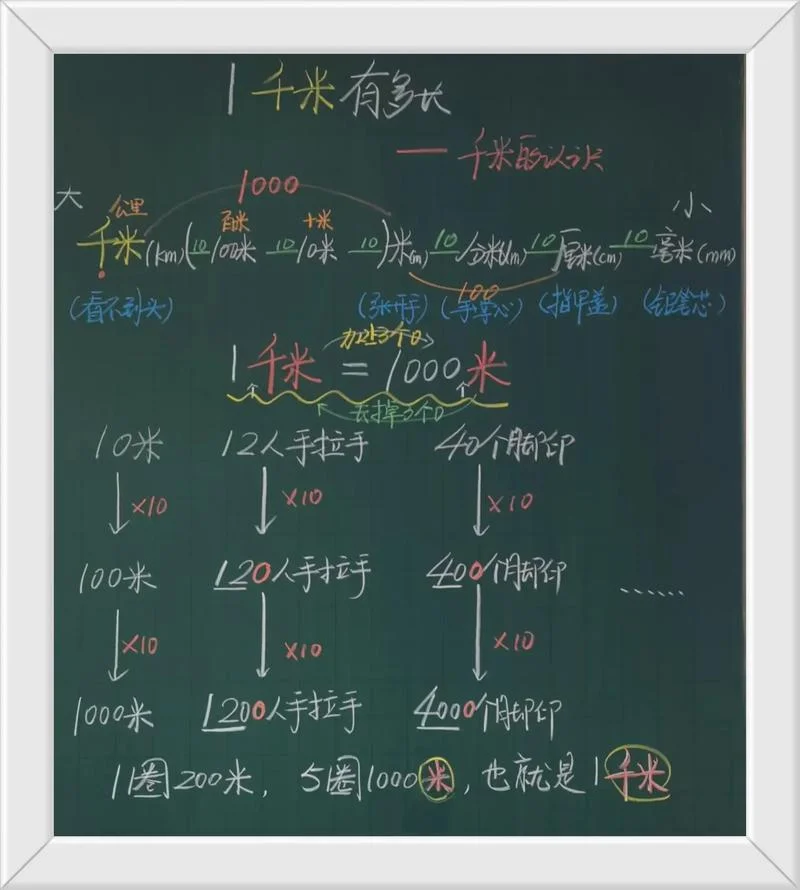 1千米有多长
——千米的认识
1000
大 公里 百米 十米 小
千米(km)(10 100米 10 10米 10)米(m) 10 分米(dm) 10 厘米(cm) 10 毫米(mm)
100
(看不到头) (张开手) (手掌心) (指甲盖) (铅笔芯)
加上3个0
1千米=1000米
去掉3个0
10米 12人手拉手 40个脚印
×10 ×10 ×10
100米 120人手拉手 400个脚印 ......
×10 ×10 ×10
1000米 1200人手拉手 4000个脚印
1圈200米,5圈1000米,也就是1千米